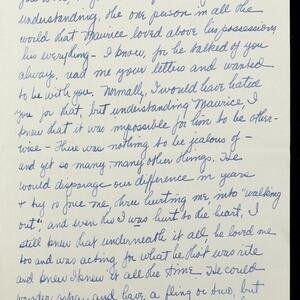 understanding, the one person in all the
world that Maurice loved above his possessions,
his everything - I know, for he talked of you
always, read me your letters and wanted
to be with you. Normally, I would have hated
you for that, but understanding Maurice, I
knew that it was impossible for him to be other-
wise - There was nothing to be jealous of -
and yet so many, many other things. He
would disparage our difference in years
+ try to force me, thru hurting me, into "walking
out", and even tho I was hurt to the heart, I
still knew that underneath it all, he loved me
too and was acting for what he tho't was rite
and knew I knew it all the time. He could
and have a fling or two, but